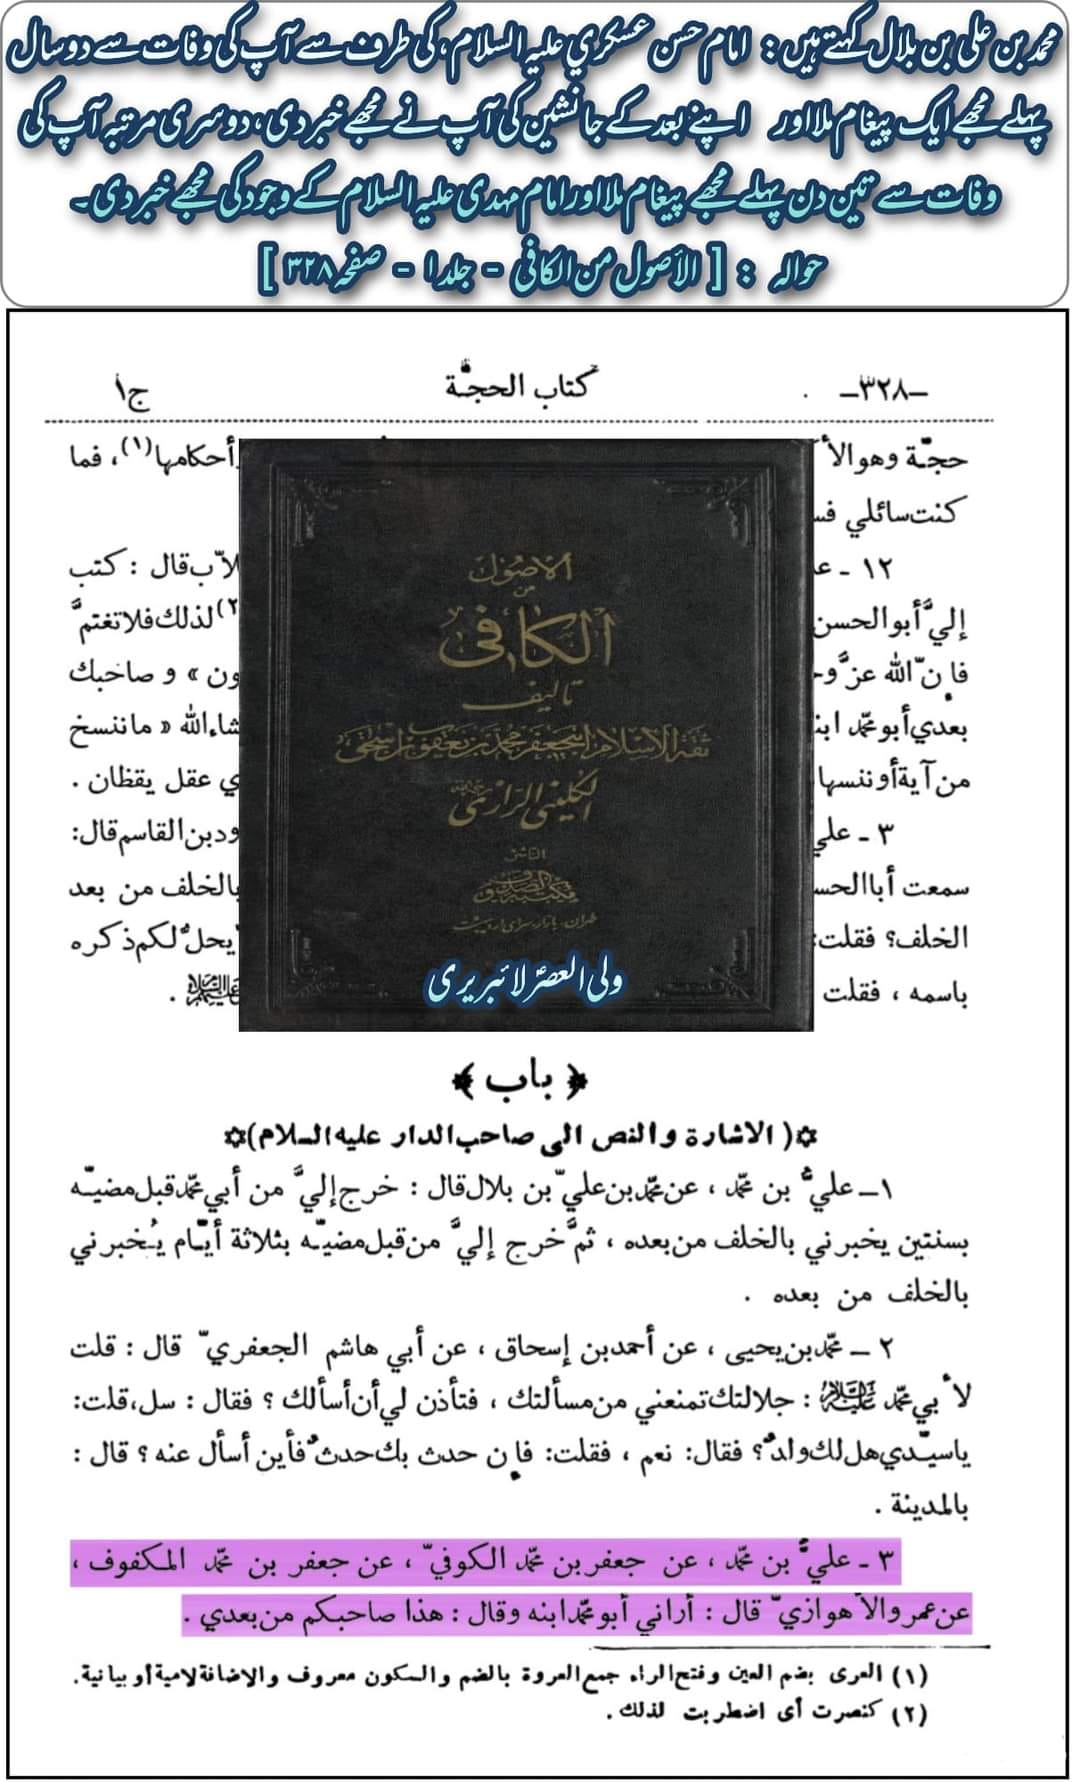 محمد بن علی بن بلال کہتے ہیں: امام حسن عسکري علیہ السلام، کی طرف سے آپ کی وفات سے دو سال
پہلے مجھے ایک پیغام ملا اور اپنے بعد کے جانشین کی آپ نے مجھے خبر دی، دوسری مرتبہ آپ کی
وفات سے تین دن پہلے مجھے پیغام ملا اور امام مہدی علیہ السلام کے وجود کی مجھے خبر دی۔
حوالہ : [ الأصول من الکافی - جلد ۱ - صفحہ ۳۲۸ ]
ج۱ كتاب الحجّة -٣٢٨-
حجّة وهو الأ أحكامها(١)، فما
كنت سائلي فس
١٢ - ع لاّب قال : كتب
إليّ أبو الحسن (٢) لذلك فلا تغتمّ
فإنّ الله عزّ وج ون » و صاحبك
بعدي أبو محمّد ابن شاء الله « ما ننسخ
من آية أو ننسها ي عقل يقظان .
٣ - علي ود بن القاسم قال:
سمعت أبا الحس بالخلف من بعد
الخلف؟ فقلت: يحلّ لكم ذكره
باسمه ، فقلت عليهم السلام .
الأصول
من
الكافي
تأليف
ثقة الإسلام أبي جعفر محمد بن يعقوب بن إسحق
الكليني الرازي
الناشر
مكتبة الصدوق
طهران - بازار سرای اردیبهشت
ولی العصرؑ لائبریری
﴿ باب ﴾
✡( الاشارة والنص الى صاحب الدار عليه السلام)✡
١ـ عليُّ بن محمّد ، عن محمّد بن عليّ بن بلال قال : خرج إليَّ من أبي محمّد قبل مضيّه
بسنتين يخبرني بالخلف من بعده ، ثمَّ خرج إليَّ من قبل مضيّه بثلاثة أيّام يُخبرني
بالخلف من بعده .
٢ ـ محمّد بن يحيى ، عن أحمد بن إسحاق ، عن أبي هاشم الجعفريّ قال : قلت
لأبي محمّد عليه السلام : جلالتك تمنعني من مسألتك ، فتأذن لي أن أسألك ؟ فقال : سل، قلت:
يا سيّدي هل لك ولدٌ؟ فقال: نعم ، فقلت: فإن حدث بك حدثٌ فأين أسأل عنه ؟ قال :
بالمدينة .
٣ ـ عليُّ بن محمّد ، عن جعفر بن محمّد الكوفيّ ، عن جعفر بن محمّد المكفوف ،
عن عمرو الأهوازيّ قال : أراني أبو محمّد ابنه وقال : هذا صاحبكم من بعدي .
(١) العرى بضم العين وفتح الراء جمع العروة بالضم والسكون معروف والاضافة لامية أو بيانية.
(٢) كنصرت أى اضطربت لذلك .